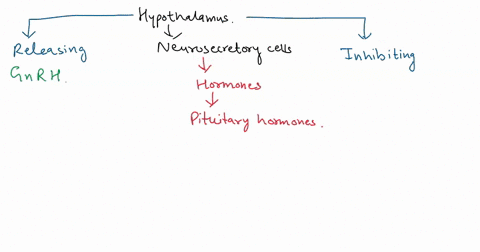 Hypothalamus.
Releasing
Neurosecretory cells
Inhibiting
GnRH.
Hormones
Pituitary hormones.